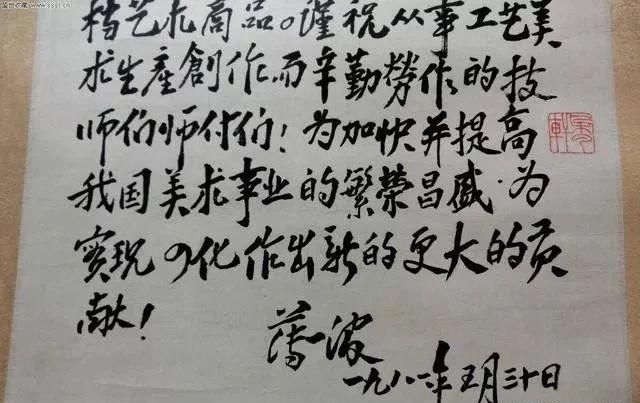 盛世收藏 www.sssc.cn
档艺术商品。谨祝从事工艺美
术生產創作而辛勤勞作的技
师们师付们！为加快并提高
我国美术事业的繁荣昌盛·为
實现四化作出新的更大的贡
献！
薄一波
一九八一年五月三十日